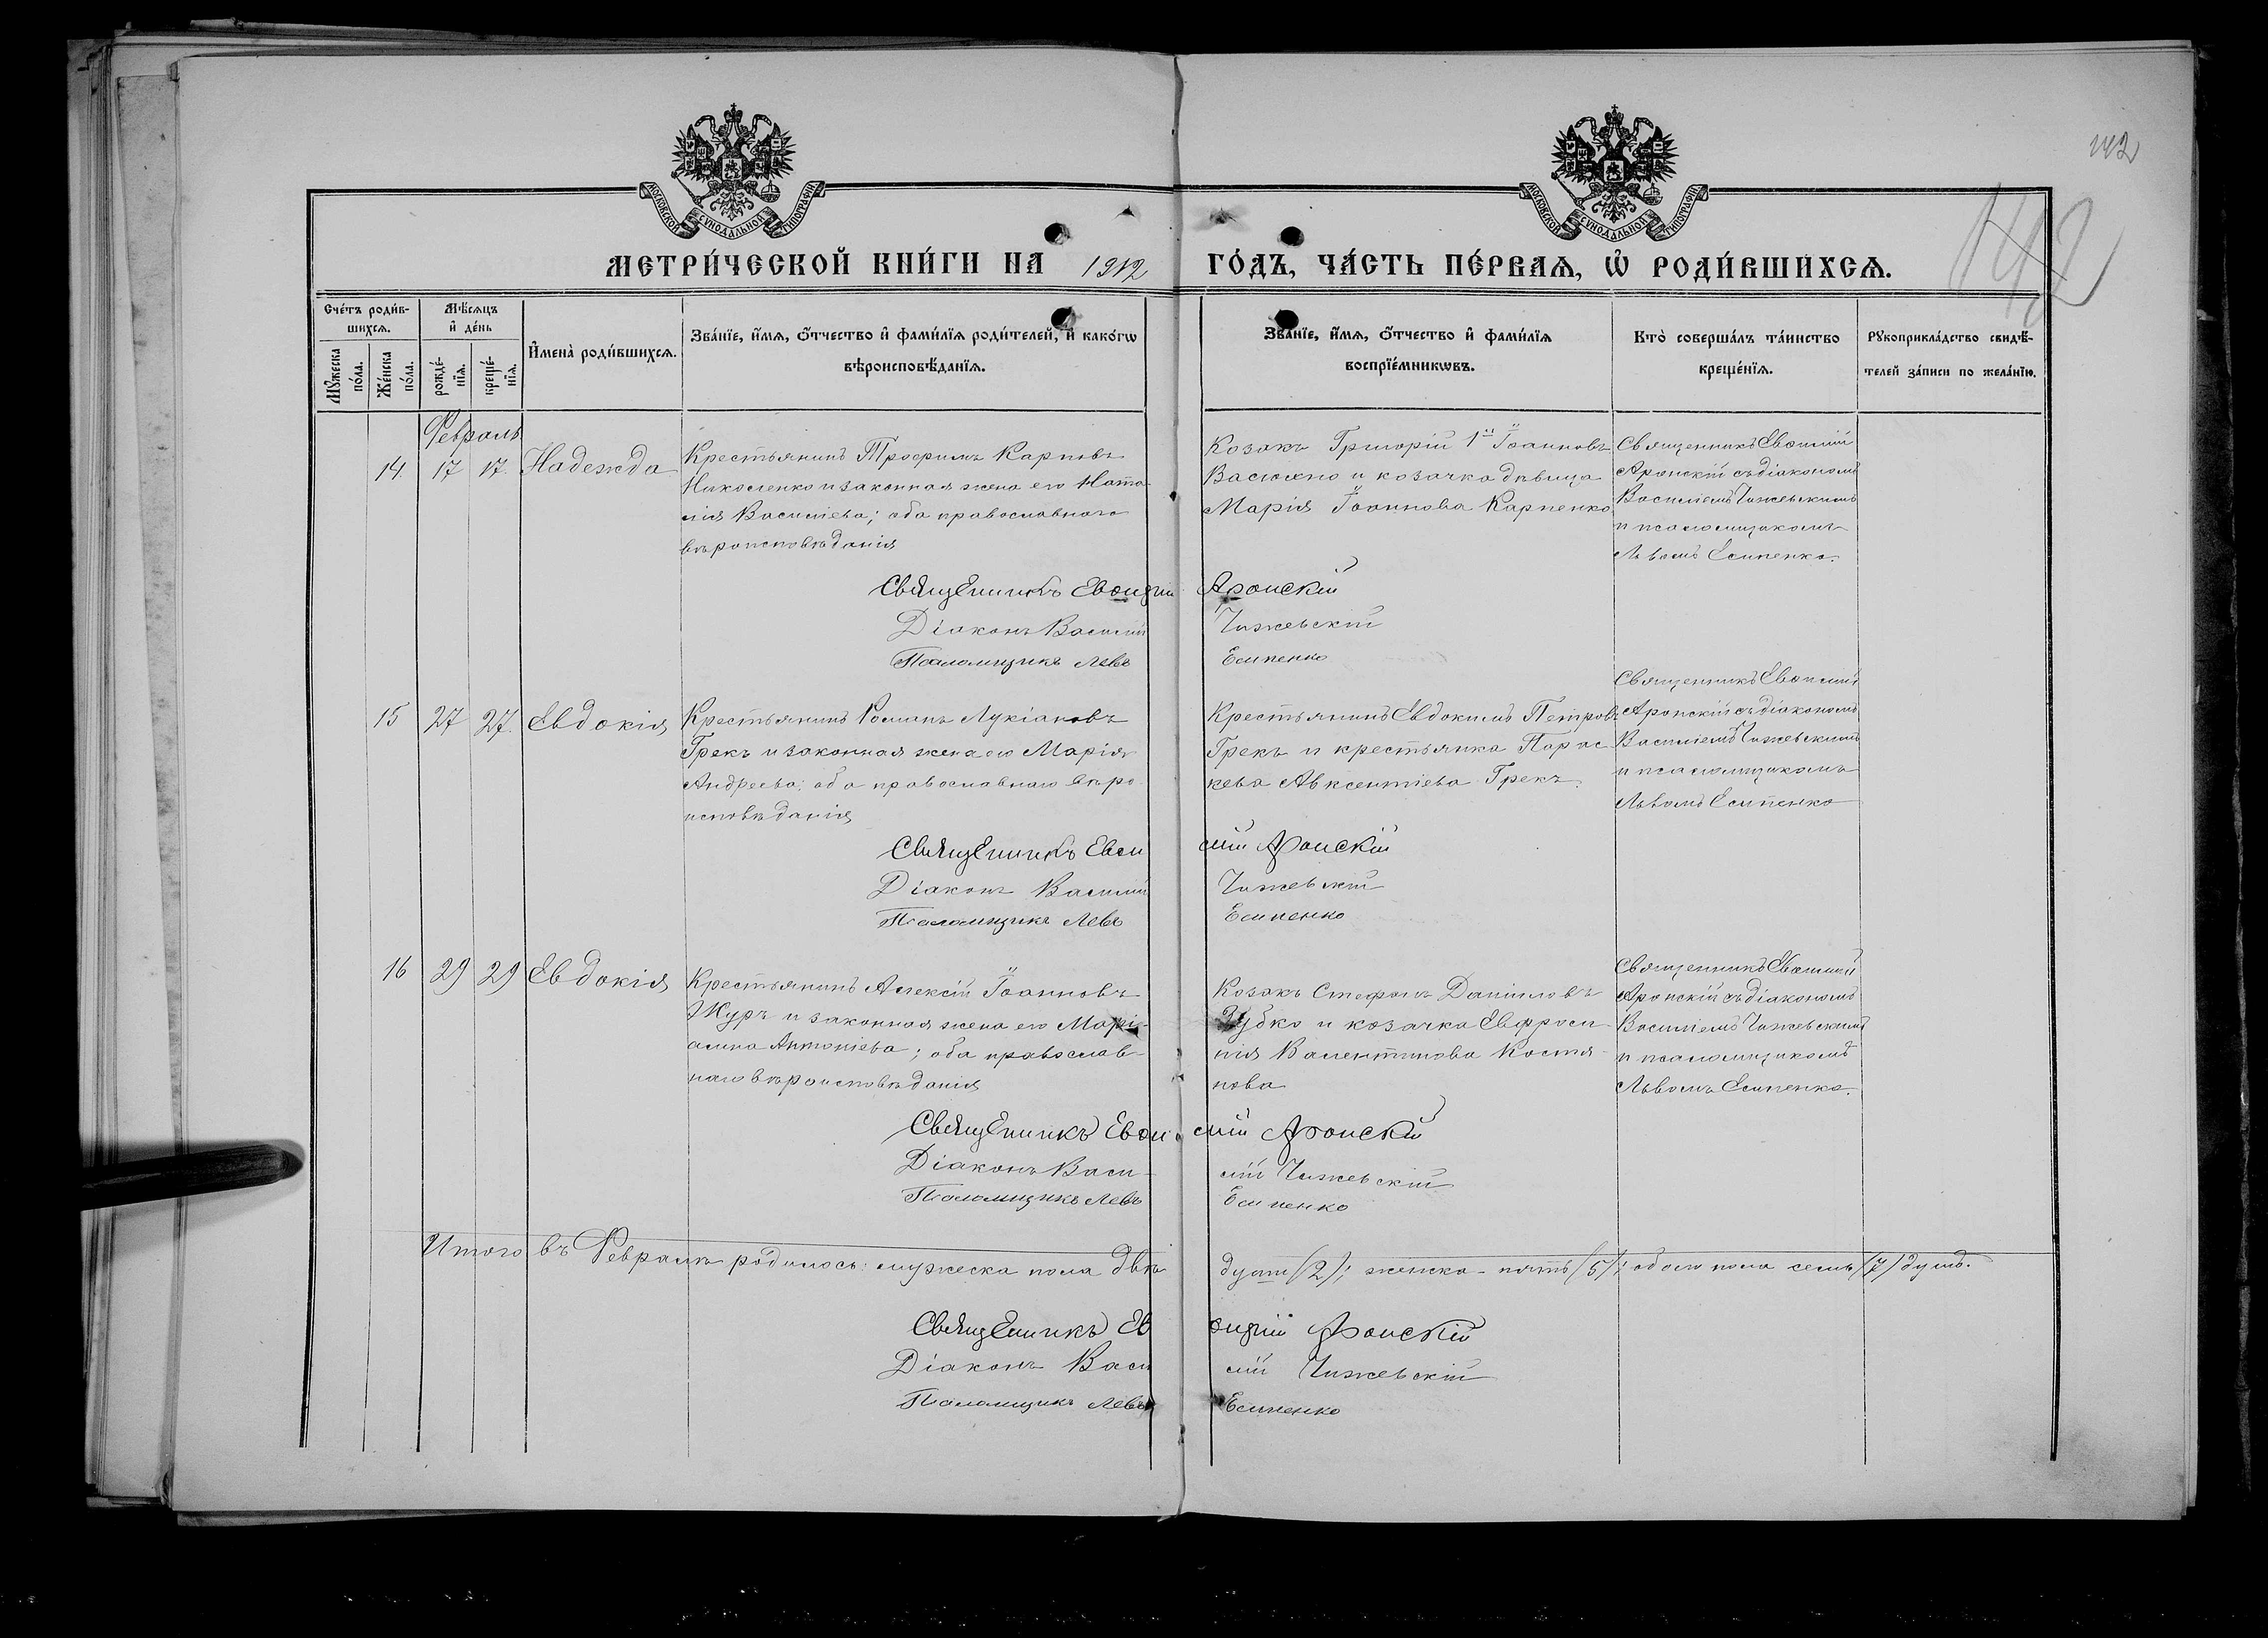 142
142
МОСКОВСКОЙ СѴНОДАЛЬНОЙ ТИПОГРАФІИ
МОСКОВСКОЙ СѴНОДАЛЬНОЙ ТИПОГРАФІИ
МЕТРИ́ЧЕСКОЙ КНИ́ГИ НА 1912 ГО́ДЪ, ЧА́СТЬ ПЕ́РВАЯ, Ѡ҆ РОДИ́ВШИХСѦ.
Сче́тъ роди́в-
шихсѧ.
Мꙋ́жеска по́ла.
Же́нска по́ла.
Мѣ́сѧцъ
и҆ де́нь
рожде́-
нїѧ.
креще́-
нїѧ.
И҆мена̀ роди́вшихсѧ.
Зва́нїе, и҆́мѧ, ѻ҆́тчество и҆ фами́лїѧ роди́телей, и҆ како́гѡ
вѣроисповѣ́данїѧ.
Зва́нїе, и҆́мѧ, ѻ҆́тчество и҆ фами́лїѧ
воспрїе́мникѡвъ.
Кто̀ соверша́лъ та́инство
креще́нїѧ.
Рꙋкоприкла́дство свидѣ́-
телей за́писи по жела́нїю.
Февраль
14 17 17. Надежда
Крестьянинъ Трофимъ Карповъ
Николенко и законная жена его Ната-
лія Василіева; оба православнаго
вѣроисповѣданія
Козакъ Григорій 1й Іоанновъ
Васюхно и козачка дѣвица
Марія Іоаннова Карпенко
Священникъ Евѳимій
Аронскій съ діакономъ
Василіемъ Чижевскимъ
и псаломщикомъ
Львомъ Есипенко.
Священникъ Евѳимій Аронскій
Діаконъ Василій Чижевскій
Псаломщикъ Левъ Есипенко
15 27 27. Евдокія
Крестьянинъ Романъ Лукіановъ
Грекъ и законная жена его Марія
Андреева; оба православнаго вѣро-
исповѣданія
Крестьянинъ Евдокимъ Петровъ
Грекъ и крестьянка Парас-
кева Авксентіева Грекъ.
Священникъ Евѳимій
Аронскій съ діакономъ
Василіемъ Чижевскимъ
и псаломщикомъ
Львомъ Есипенко
Священникъ Евѳимій Аронскій
Діаконъ Василій Чижевскій
Псаломщикъ Левъ Есипенко
16 29 29 Евдокія
Крестьянинъ Алексій Іоанновъ
Журъ и законная жена его Марі-
амна Антоніева; оба православ-
наго вѣроисповѣданія
Козакъ Стефанъ Даниловъ
Зубко и козачка Евфроси-
нія Валентинова Костя-
нова
Священникъ Евѳимій
Аронскій съ діакономъ
Василіемъ Чижевскимъ
и псаломщикомъ
Львомъ Есипенко.
Священникъ Евѳимій Аронскій
Діаконъ Василій Чижевскій
Псаломщикъ Левъ Есипенко
Итого въ Февралѣ родилось: мужеска пола двѣ души (2); женска - пять (5); обоего пола семь (7) душъ.
Священникъ Евѳимій Аронскій
Діаконъ Василій Чижевскій
Псаломщикъ Левъ Есипенко